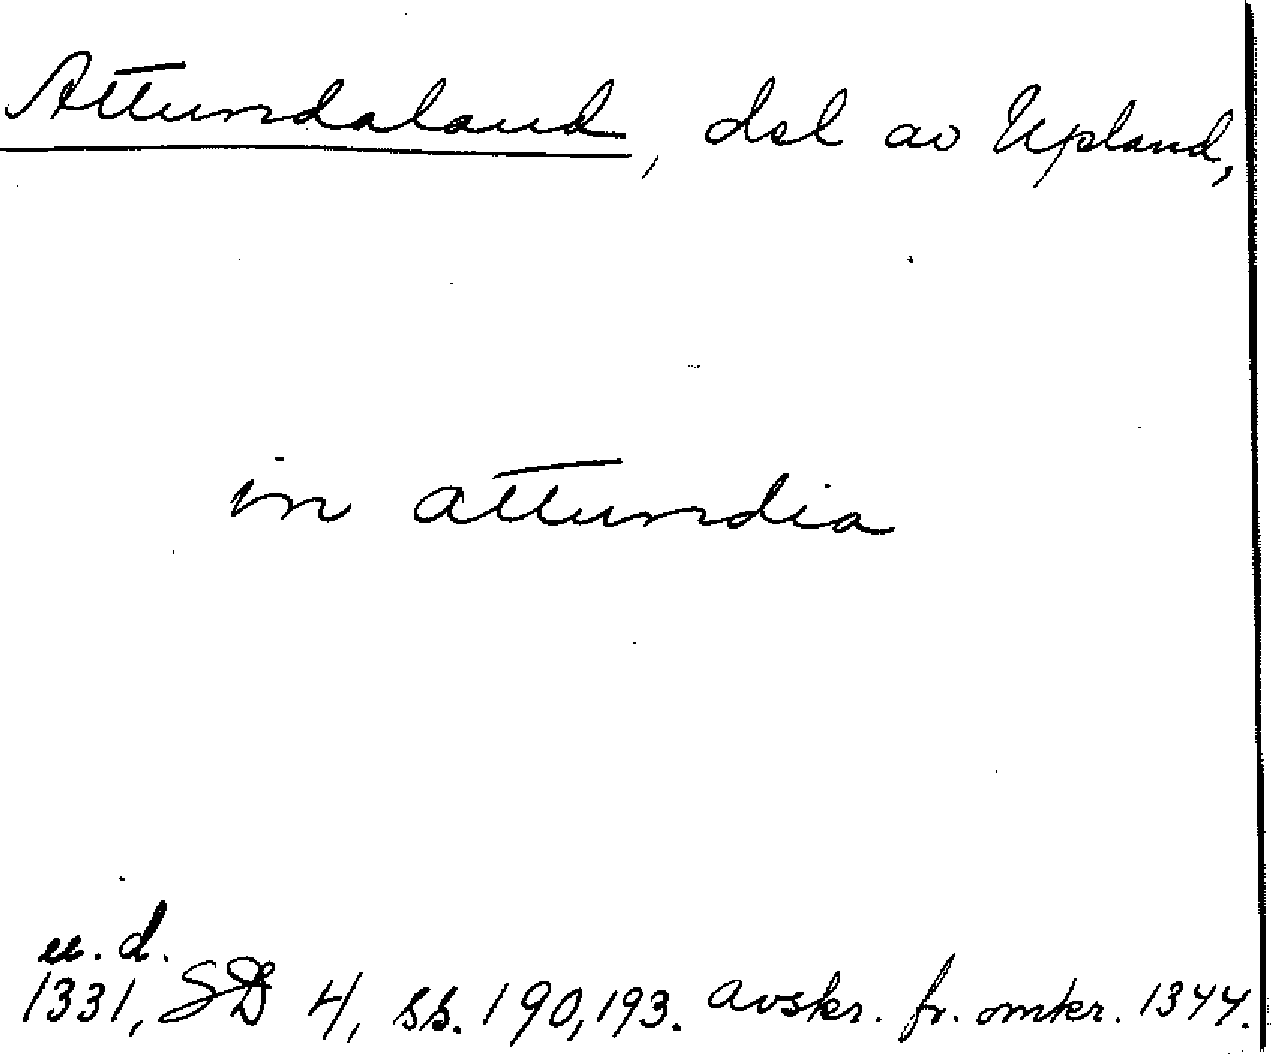 Attundaland, del av Upland,
in attundia
u. d.
1331, SD 4, ss. 190, 193. avskr. fr. omkr. 1344.